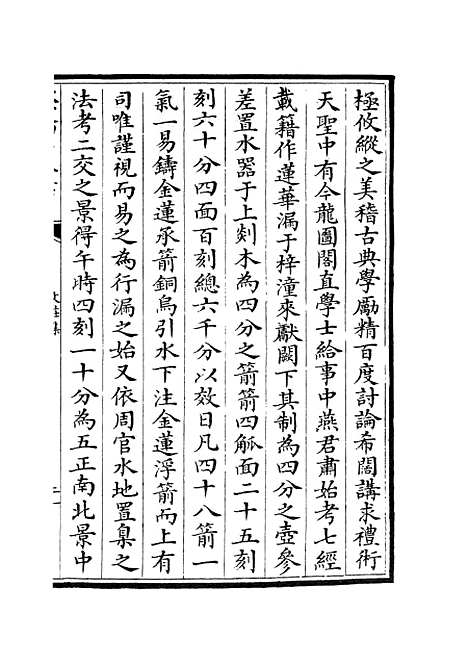 極攸縱之美稽古典學勵精百度討論希闊講求禮術
天聖中有今龍圖閣直學士給事中燕君肅始考七經
載籍作蓮華漏于梓潼來獻闕下其制為四分之壺參
差置水器于上刻木為四分之箭箭四觚面二十五刻
刻六十分四面百刻總六千分以效日凡四十八箭一
氣一易鑄金蓮承箭銅烏引水下注金蓮浮箭而上有
司唯謹視而易之為行漏之始又依周官水地置臬之
法考二交之景得午時四刻一十分為五正南北景中